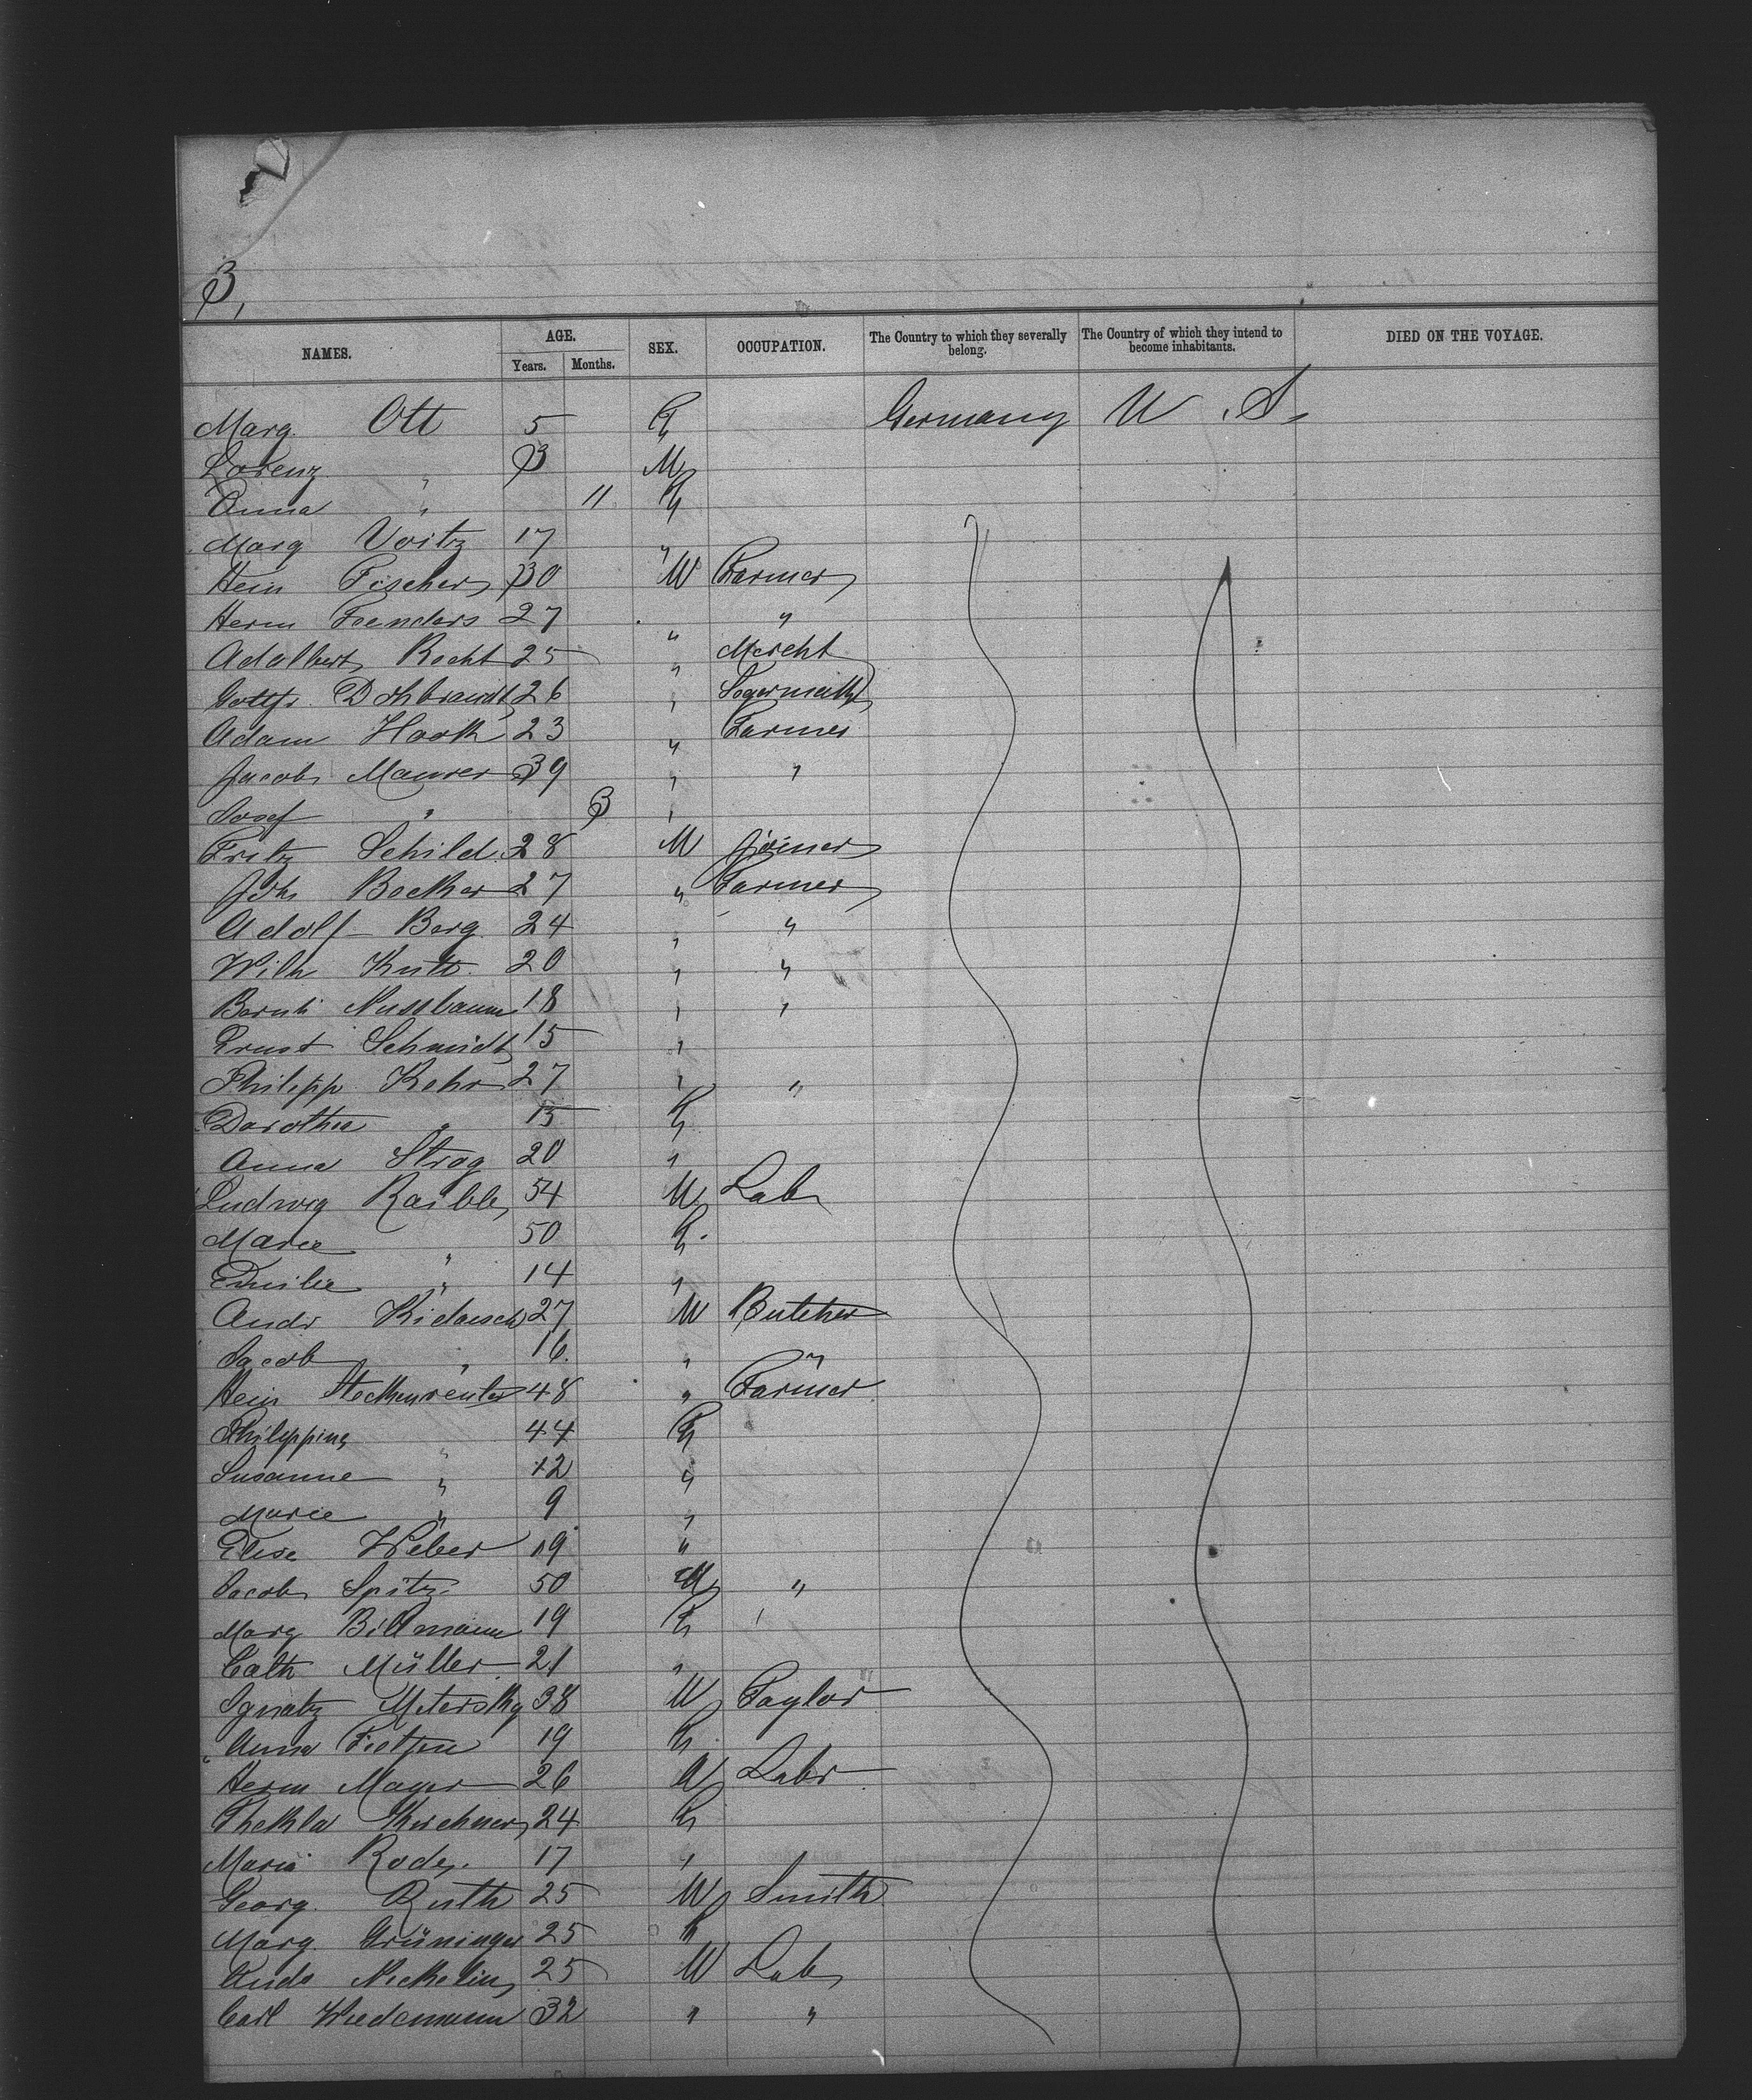 3,
NAMES. AGE. SEX. OCCUPATION. The Country to which they severally belong. The Country of which they intend to become inhabitants. DIED ON THE VOYAGE.
Years. Months.
Marg. Ott 5 Germany U. S.
Lorenz " 3 M
Anna " 11
Marg Voitz 17 "
Hein Fischer 30 M Farmer
Herm Foenders 27 " "
Adalbert Recht 25 " Mercht
Gottfr. Dohbrandt 26 "
Adam Hook 23 " Farmer
Jacob Maurer 39 " "
Josef " 3 "
Fritz Schild 28 M Joiner
Joh Becker 27 " Farmer
Adolf Berg 24 " "
Wilh 20 " "
Nussbaum 18 " "
Ernst Schmidt 15 "
Philipp Kehr 27 " "
Dorothea " 15
Anna Strog 20 "
Ludwig Raible 54 M Lab
Marie " 50
Emilie " 14 "
Andr 27 M Butcher
Jacob " 16 " "
Hein Steckenreuter 48 " Farmer
Philippine " 44
Susanne " 12 "
Marie " 9 "
Elise Weber 19 "
Jacob Spitz 50 M "
Marg Billmann 19
Cath Müller 21 "
Ignatz Meters 38 M Taylor
Anna Tietjen 19
Herm Mayer 26 M Labr
Thekla Kirchner 24
Maria Rode 17 "
Georg. Ruth 25 M Smith
Marg. Grüninger 25
25 M Lab
Carl Wiedemann 32 " "